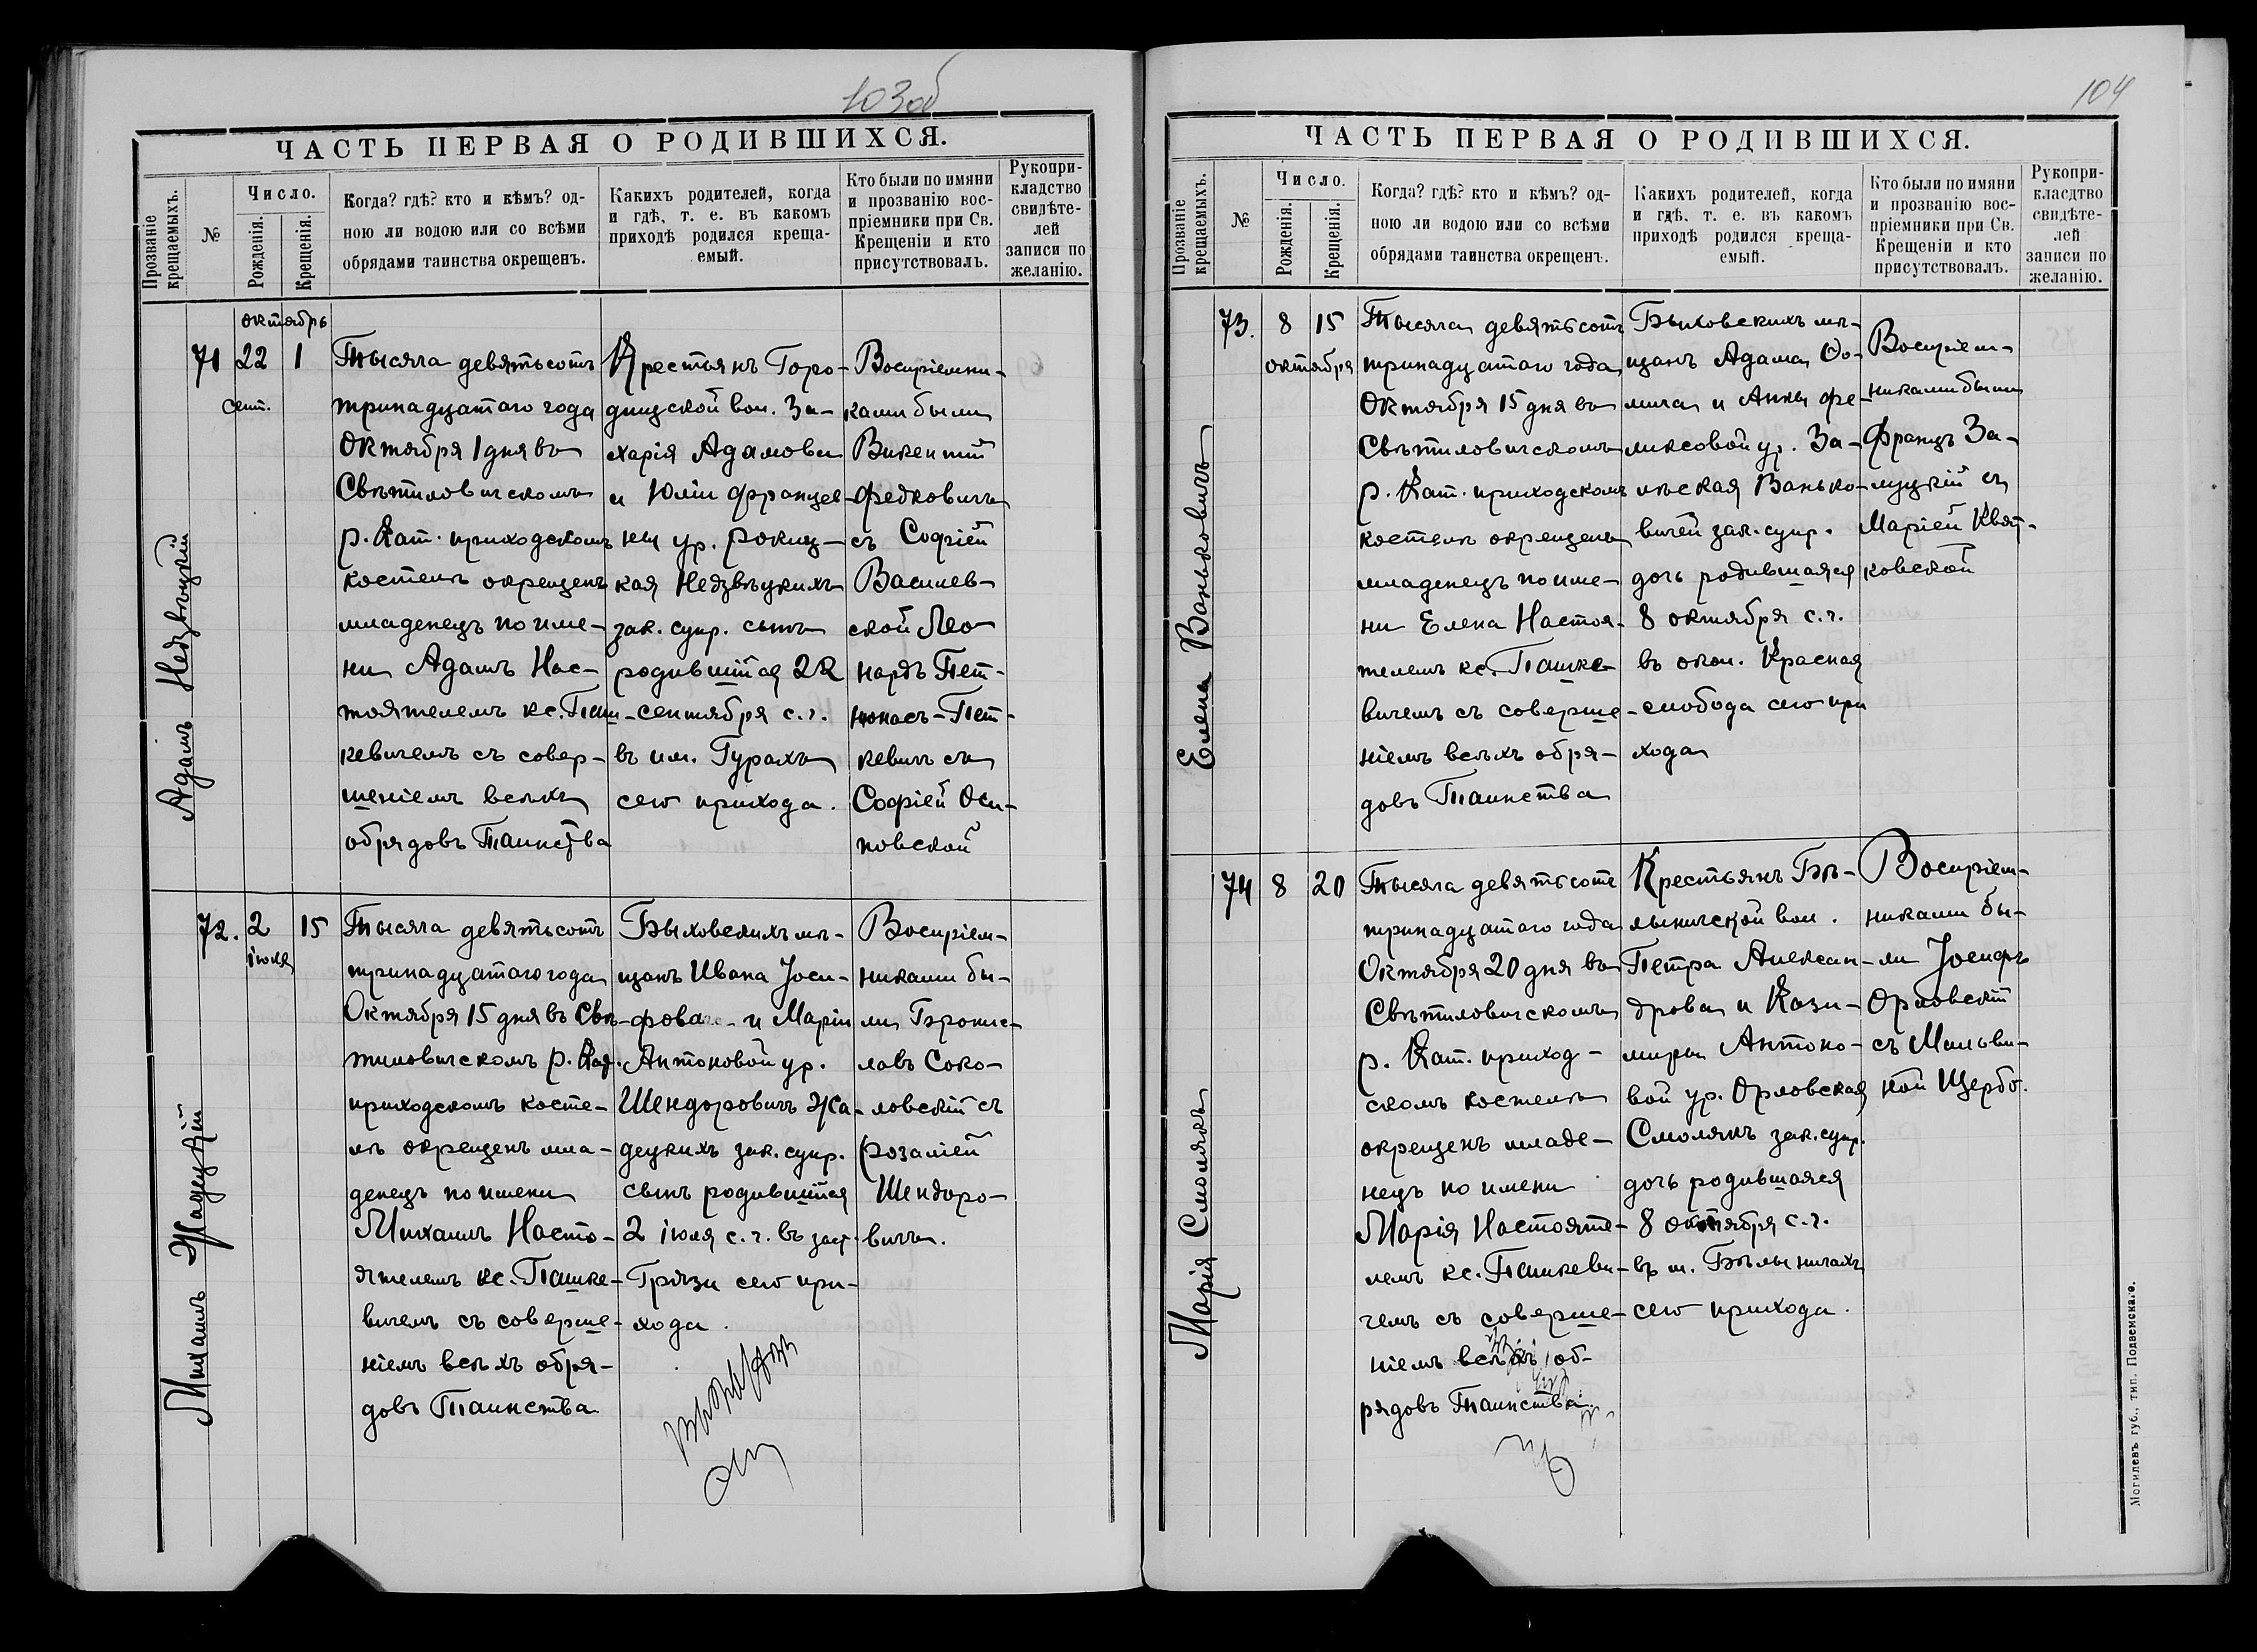 103об
ЧАСТЬ ПЕРВАЯ О РОДИВШИХСЯ.
Прозваніе крещаемыхъ.
№
Число.
Рожденія.
Крещенія.
Когда? гдѣ? кто и кѣмъ? од-
ною ли водою или со всѣми
обрядами таинства окрещенъ.
Какихъ родителей, когда
и гдѣ, т. е. въ какомъ
приходѣ родился креща-
емый.
Кто были по имяни
и прозванію вос-
пріемники при Св.
Крещеніи и кто
присутствовалъ.
Рукопри-
кладство
свидѣте-
лей
записи по
желанію.
Адамъ Недзвѣцкій
октябрь
71 22 1
сент.
Тысяча девятьсотъ
тринадцатаго года
Октября 1 дня въ
Свѣтиловичскомъ
р. Кат. приходскомъ
костелѣ окрещенъ
младенецъ по име-
ни Адамъ Нас-
тоятелемъ кс. Паш-
кевичемъ съ совер-
шеніемъ всѣхъ
обрядовъ Таинства
Крестьянъ Горо-
дищской вол. За-
харія Адамова
и Юліи Францев-
ны ур. Рокиц-
кая Недзвѣцкихъ
зак. супр. сынъ
родившійся 22
сентября с. г.
въ им. Гурахъ
сего прихода.
Воспріемни-
ками были
Викентій
Федковичъ
съ Софіей
Василев-
ской Лео
нардъ Пет-
кевичъ съ
Софіей Оси-
повской
Михаилъ Жадецкій
72. 2 15
іюля
Тысяча девятьсотъ
тринадцатаго года
Октября 15 дня въ Свѣ-
тиловичскомъ р. Кат.
приходскомъ косте-
лѣ окрещенъ мла-
денецъ по имени
Михаилъ Насто-
ятелемъ кс. Пашке-
вичемъ съ соверше-
ніемъ всѣхъ обря-
довъ Таинства.
Быховскихъ мѣ-
щанъ Ивана Іоси-
фова и Маріи
Антоновой ур.
Шендоровичъ Жа-
децкихъ зак. супр.
сынъ родившійся
2 іюля с. г. въ заст.
Грязи сего при-
хода.
Воспріем-
никами бы-
ли Бронис-
лавъ Соко-
ловскій съ
Розаліей
Шендоро-
вичъ.
104
ЧАСТЬ ПЕРВАЯ О РОДИВШИХСЯ.
Прозваніе крещаемыхъ.
№
Число.
Рожденія.
Крещенія.
Когда? гдѣ? кто и кѣмъ? од-
ною ли водою или со всѣми
обрядами таинства окрещенъ.
Какихъ родителей, когда
и гдѣ, т. е. въ какомъ
приходѣ родился креща-
емый.
Кто были по имяни
и прозванію вос-
пріемники при Св.
Крещеніи и кто
присутствовалъ.
Рукопри-
класдтво
свидѣте-
лей
записи по
желанію.
Елена Ваньковичъ
73. 8 15
октября
Тысяча девятьсотъ
тринадцатаго года
Октября 15 дня въ
Свѣтиловичскомъ
р. Кат. приходскомъ
костелѣ окрещенъ
младенецъ по име-
ни Елена Настоя-
телемъ кс. Пашке-
вичемъ съ соверше-
ніемъ всѣхъ обря-
довъ Таинства
Быховскихъ мѣ-
щанъ Адама Ѳо-
мича и Анны Фе-
ликсовой ур. За-
лѣская Ванько-
вичей зак. супр.
дочь родившаяся
8 октября с. г.
въ окол. Красная
слобода сего при
хода
Воспріем-
никами были
Францъ За-
луцкій съ
Маріей Квят-
ковской
Марія Смолякъ
74 8 20
Тысяча девятьсотъ
тринадцатаго года
Октября 20 дня въ
Свѣтиловичскомъ
р. Кат. приход-
скомъ костелѣ
окрещенъ младе-
нецъ по имени
Марія Настояте-
лемъ кс. Пашкеви-
чемъ съ соверше-
ніемъ всѣхъ об-
рядовъ Таинства.
Крестьянъ Бѣ-
лыничской вол.
Петра Алексан-
дрова и Кази-
миры Антоно-
вой ур. Орловская
Смолякъ зак. супр.
дочь родившаяся
8 октября с. г.
въ м. Бѣлыничахъ
сего прихода.
Воспріем-
никами бы-
ли Іосифъ
Орловскій
съ Мальви-
ной Щербо.
Могилевъ губ., тип. Подземскаго.